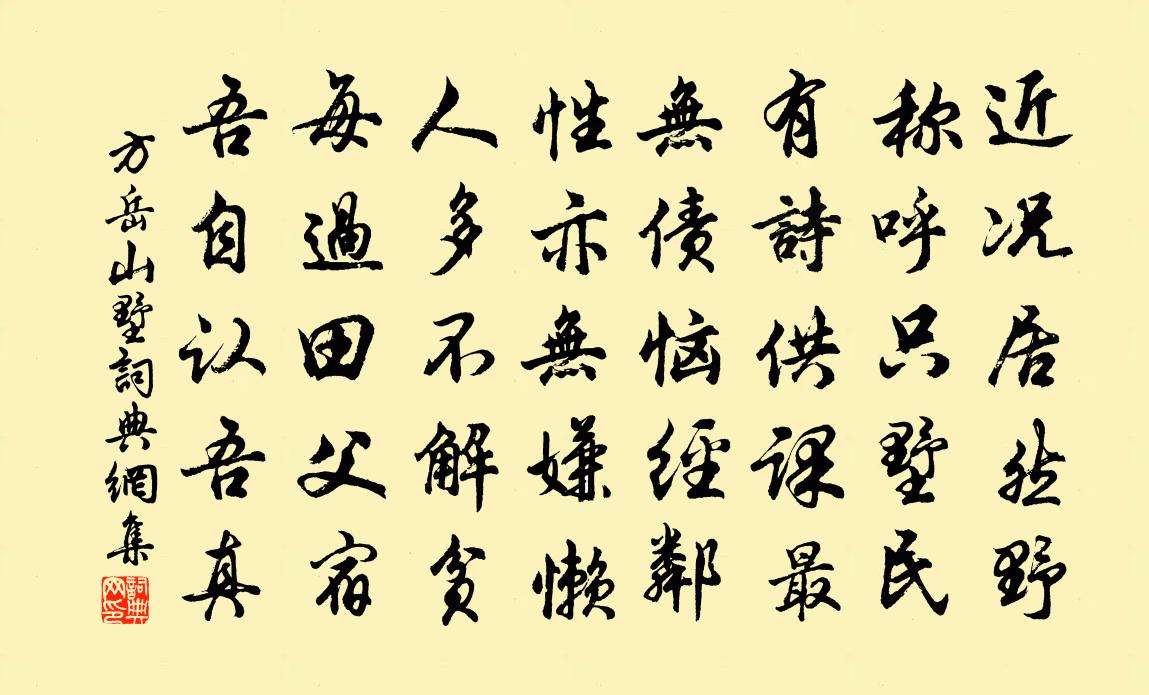 近况居然野
称呼只墅民
有詩供課最
無债恼經鄰
性亦無嫌懒
人多不解貧
每過田父宿
吾自认吾真
方岳山墅詞典網集
詞典网印